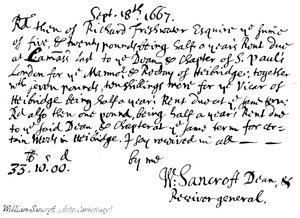 Sept. 18th. 1667.
Rd then of Richard Freshwater Esquire ye summe
of five, & twenty pounds being half a years Rent due
at Lammas last to ye Dean & Chapter of S. Pauls
London for ye Manor & Rectory of Heibridge; together
with seven pounds, ten shillings more for ye Vicar of
Heibridge being half a years Rent due at ye same terme.
Rd also then one pound, being half a years Rent due
to ye said Dean & Chapter at ye same terme for cer-
tain Woods in Heibridge. I say received in all
lb s d by me
33. 10. 00.
W. Sancroft Dean, &
Receiver general.
William Sancroft (Archp. Canterbury)